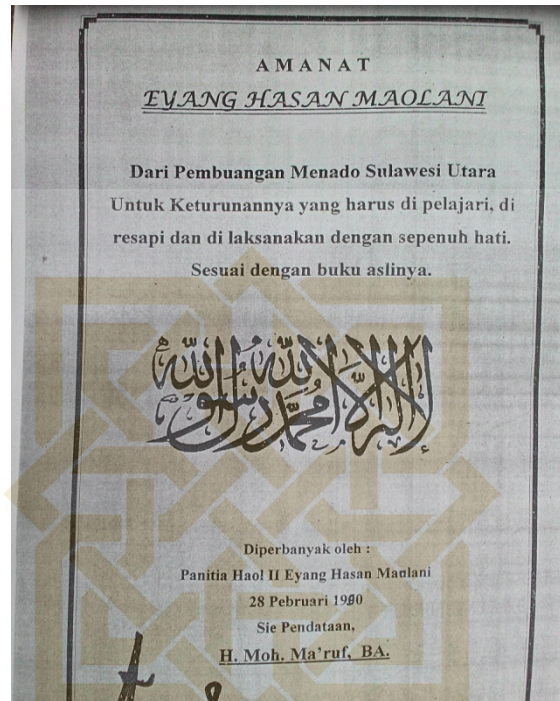 AMANAT
EYANG HASAN MAOLANI
Dari Pembuangan Menado Sulawesi Utara
Untuk Keturunannya yang harus di pelajari, di
resapi dan di laksanakan dengan sepenuh hati.
Sesuai dengan buku aslinya.
لا إله إلا الله محمد رسول الله
Diperbanyak oleh :
Panitia Haol II Eyang Hasan Maulani
28 Pebruari 1990
Sie Pendataan,
H. Moh. Ma'ruf, BA.